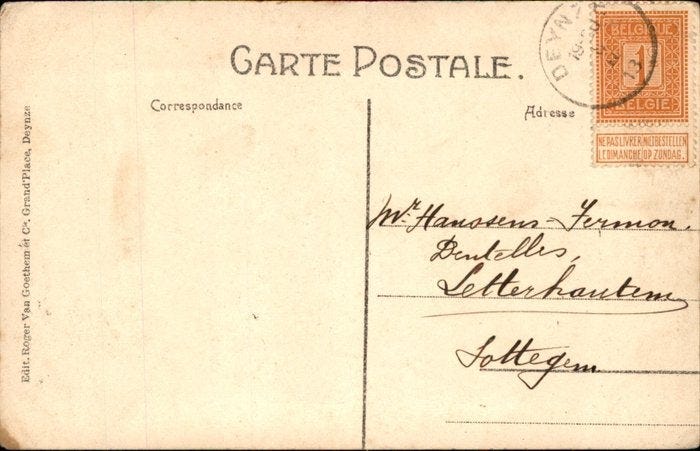 CARTE POSTALE.
Correspondance
Adresse
DEYNZE
13
BELGIQUE
1
BELGIE
NE PAS LIVRER NIET BESTELLEN
LE DIMANCHE OP ZONDAG.
Mr. Hanssens-Fermon,
Dentelles,
Letterhautem
Sottegem
Edit. Roger Van Goethem ét Cie. Grand'Place, Deynze